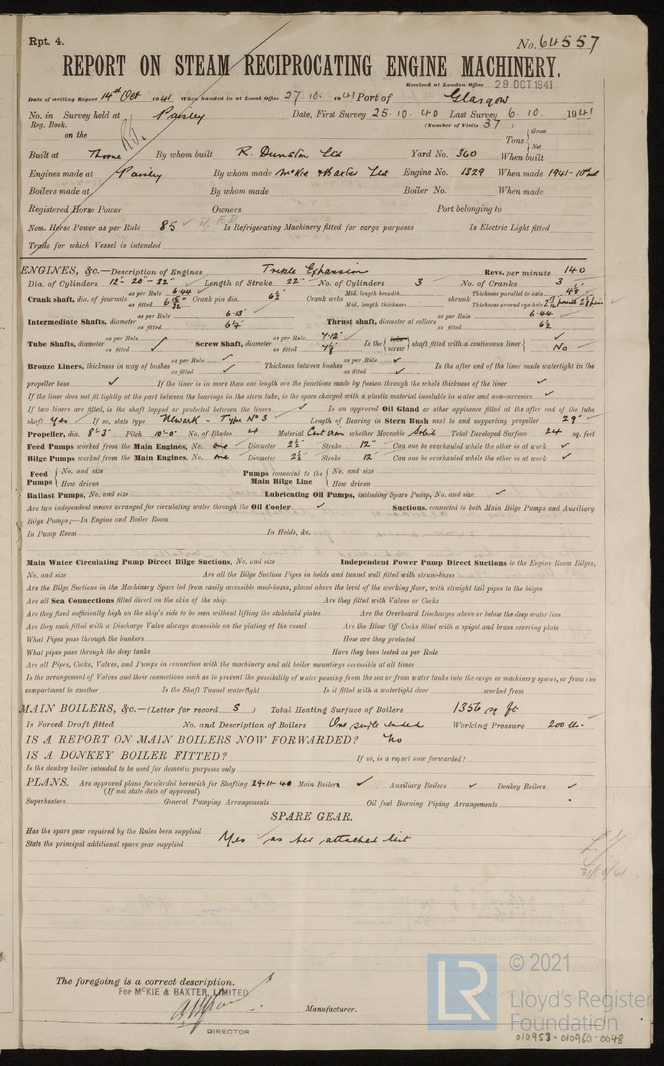 Rpt. 4.
No. 64557
REPORT ON STEAM RECIPROCATING ENGINE MACHINERY.
Received at London Office 29 OCT 1941
Date of writing Report 14th Oct 1941 When handed in at Local Office 27.10.1941 Port of Glasgow
No. in Survey held at Paisley Date, First Survey 25.10.40 Last Survey 6.10.1941
Reg. Book. (Number of Visits 37)
on the Tons { Gross Net
Built at Thorne By whom built R. Dunston Ltd Yard No. 360 When built
Engines made at Paisley By whom made McKie & Baxter Ltd Engine No. 1329 When made 1941-10
Boilers made at By whom made Boiler No. When made
Registered Horse Power Owners Port belonging to
Nom. Horse Power as per Rule 85 Is Refrigerating Machinery fitted for cargo purposes Is Electric Light fitted
Trade for which Vessel is intended
ENGINES, &c.—Description of Engines Triple Expansion Revs. per minute 140
Dia. of Cylinders 12"- 20 - 32" Length of Stroke 22" No. of Cylinders 3 No. of Cranks 3
Crank shaft, dia. of journals as per Rule 6.44 as fitted Crank pin dia. 6½ Crank webs Mid. length breadth Mid. length thickness shrunk Thickness parallel to axis Thickness around eye-hole
Intermediate Shafts, diameter as per Rule 6.13" as fitted Thrust shaft, diameter at collars as per Rule 6.44 as fitted 6½
Tube Shafts, diameter as per Rule as fitted ✓ Screw Shaft, diameter as per Rule as fitted Is the { tube screw } shaft fitted with a continuous liner { No
Bronze Liners, thickness in way of bushes as per Rule ✓ as fitted ✓ Thickness between bushes as per Rule ✓ as fitted ✓ Is the after end of the liner made watertight in the
propeller boss ✓ If the liner is in more than one length are the junctions made by fusion through the whole thickness of the liner ✓
If the liner does not fit tightly at the part between the bearings in the stern tube, is the space charged with a plastic material insoluble in water and non-corrosive ✓
If two liners are fitted, is the shaft lapped or protected between the liners ✓ Is an approved Oil Gland or other appliance fitted at the after end of the tube
shaft Yes If so, state type Newark - Type No 3 Length of Bearing in Stern Bush next to and supporting propeller 29"
Propeller, dia. 8'-3" Pitch 10'-0" No. of Blades 4 Material Cast iron whether Moveable Solid Total Developed Surface 24 sq. feet
Feed Pumps worked from the Main Engines, No. one Diameter 2½" Stroke 12" Can one be overhauled while the other is at work ✓
Bilge Pumps worked from the Main Engines, No. one Diameter 2½" Stroke 12" Can one be overhauled while the other is at work ✓
Feed Pumps { No. and size How driven Pumps connected to the Main Bilge Line { No. and size How driven
Ballast Pumps, No. and size Lubricating Oil Pumps, including Spare Pump, No. and size ✓
Are two independent means arranged for circulating water through the Oil Cooler ✓ Suctions, connected to both Main Bilge Pumps and Auxiliary
Bilge Pumps;—In Engine and Boiler Room
In Pump Room In Holds, &c.
Main Water Circulating Pump Direct Bilge Suctions, No. and size Independent Power Pump Direct Suctions to the Engine Room Bilges,
No. and size Are all the Bilge Suction Pipes in holds and tunnel well fitted with strum-boxes
Are the Bilge Suctions in the Machinery Space led from easily accessible mud-boxes, placed above the level of the working floor, with straight tail pipes to the bilges
Are all Sea Connections fitted direct on the skin of the ship Are they fitted with Valves or Cocks
Are they fixed sufficiently high on the ship's side to be seen without lifting the stokehold plates Are the Overboard Discharges above or below the deep water line
Are they each fitted with a Discharge Valve always accessible on the plating of the vessel Are the Blow Off Cocks fitted with a spigot and brass covering plate
What Pipes pass through the bunkers How are they protected
What pipes pass through the deep tanks Have they been tested as per Rule
Are all Pipes, Cocks, Valves, and Pumps in connection with the machinery and all boiler mountings accessible at all times
Is the arrangement of Valves and their connections such as to prevent the possibility of water passing from the sea or from water tanks into the cargo or machinery spaces, or from one
compartment to another Is the Shaft Tunnel watertight Is it fitted with a watertight door worked from
MAIN BOILERS, &c.—(Letter for record S) Total Heating Surface of Boilers 1356 sq ft
Is Forced Draft fitted No. and Description of Boilers One single ended Working Pressure 200 lb.
IS A REPORT ON MAIN BOILERS NOW FORWARDED? No
IS A DONKEY BOILER FITTED? If so, is a report now forwarded?
Is the donkey boiler intended to be used for domestic purposes only
PLANS. Are approved plans forwarded herewith for Shafting 29-11-40 Main Boilers ✓ Auxiliary Boilers ✓ Donkey Boilers ✓
(If not state date of approval)
Superheaters General Pumping Arrangements Oil fuel Burning Piping Arrangements
SPARE GEAR.
Has the spare gear required by the Rules been supplied Yes as per attached list
State the principal additional spare gear supplied
The foregoing is a correct description.
For McKIE & BAXTER, LIMITED
Manufacturer.
DIRECTOR
LR © 2021
Lloyd's Register
Foundation
010953-010960-0048